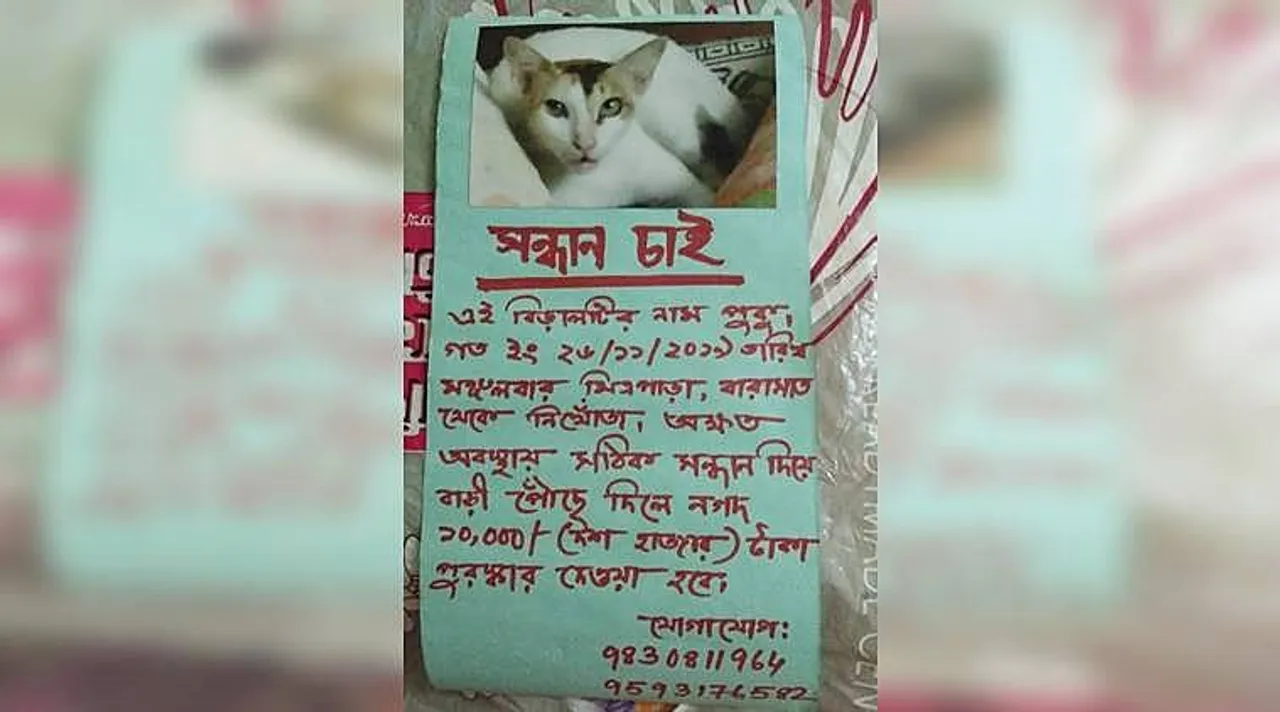 সন্ধান চাই
এই বিড়ালটির নাম পুকু,
গত ইং ২৬/১১/২০১৯ তারিখ
মঙ্গলবার মিত্রপাড়া, বারাসাত
থেকে নিখোঁজ, অক্ষত
অবস্থায় সঠিক সন্ধান দিয়ে
বাড়ী পৌঁছে দিলে নগদ
১০,০০০/- (দশ হাজার) টাকা
পুরস্কার দেওয়া হবে,
যোগাযোগ:
9830811964
9593176582